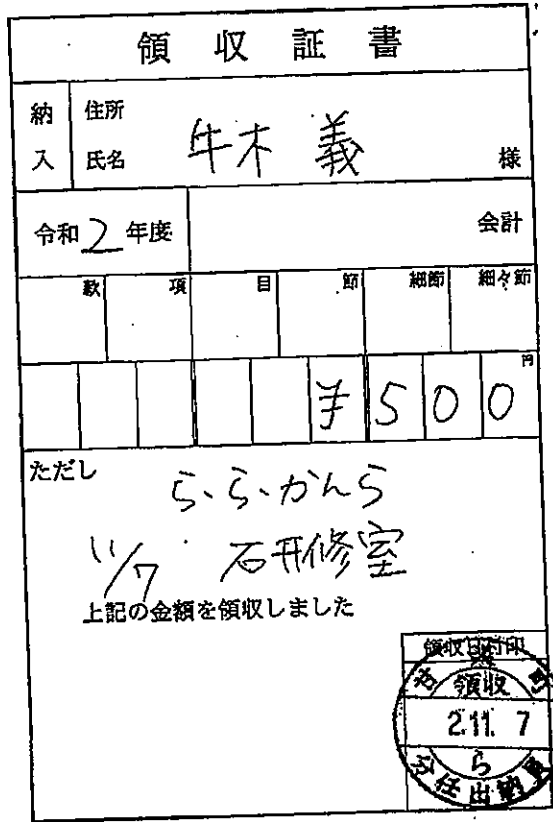 領収証書
納入
住所
氏名 牛木 義 様
令和2年度 会計
款 項 目 節 細節 細々節
円
¥500
ただし
ら、ら、かんら
11/7 研修室
上記の金額を領収しました
領収日付印
町
領収
2.11.7
ら
分任出納員